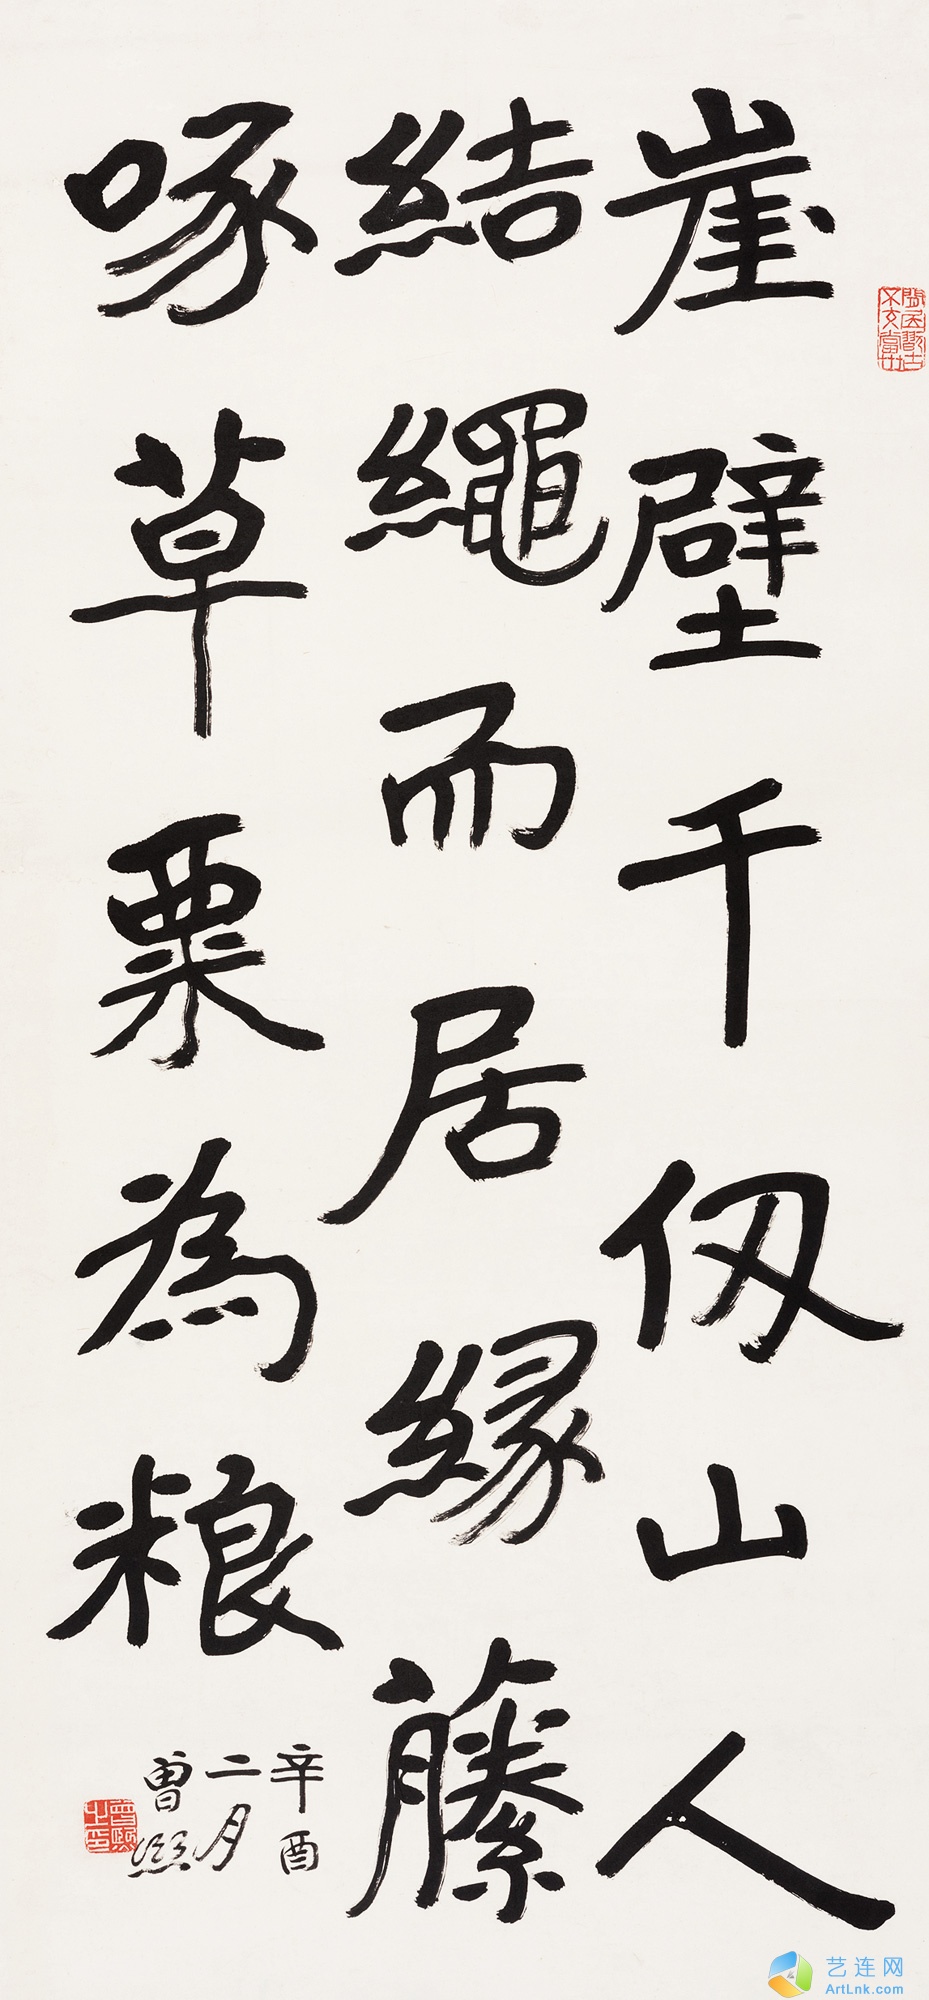 崖壁千仞山人
結繩而居緣藤
啄草粟為粮
辛酉
二月
曾熙
曾熙之印
艺连网
ArtLnk.com